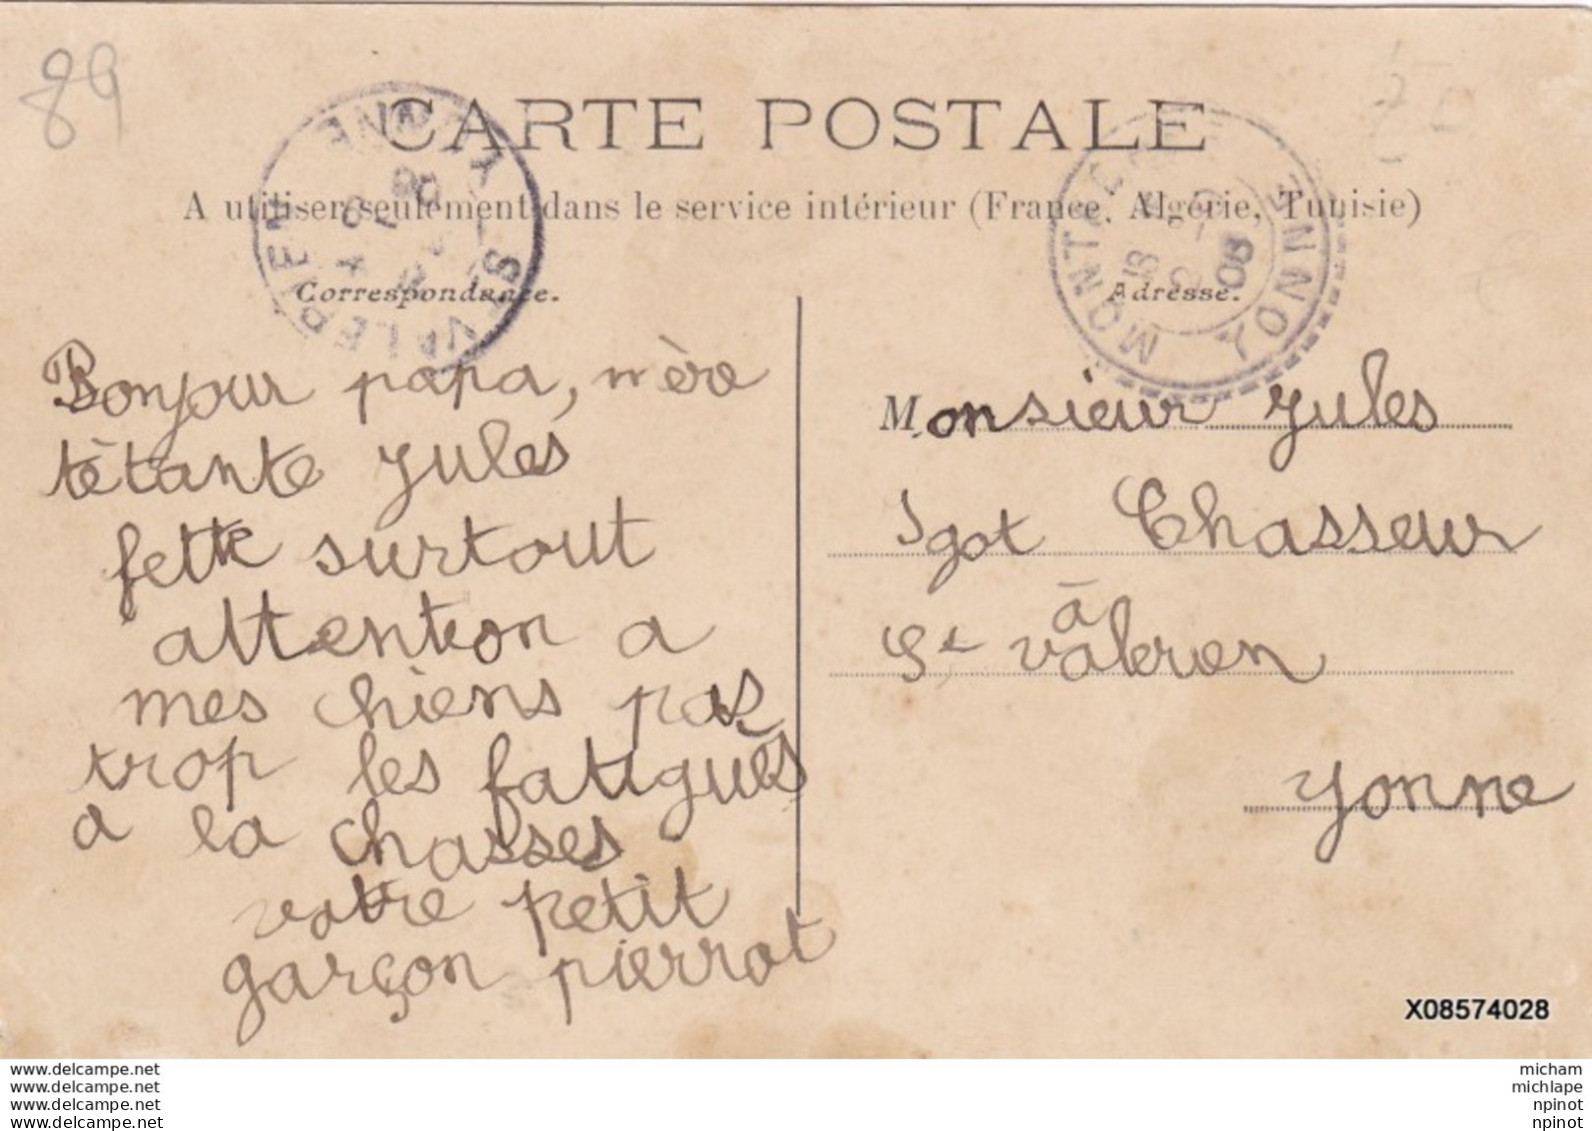 89
CARTE POSTALE
A utiliser seulement dans le service intérieur (France, Algérie, Tunisie)
ST VALERIEN YONNE
MONTACHER YONNE
08
Correspondance.
Adresse.
Bonjour papa, mère
tètante Jules
fette surtout
attention a
mes chiens pas
trop les fatiguès
a la chasses
votre petit
garçon pierrot
Monsieur Jules
Igot Chasseur
à
St valerien
Yonne
X08574028
www.delcampe.net
www.delcampe.net
www.delcampe.net
www.delcampe.net
micham
michlape
npinot
npinot